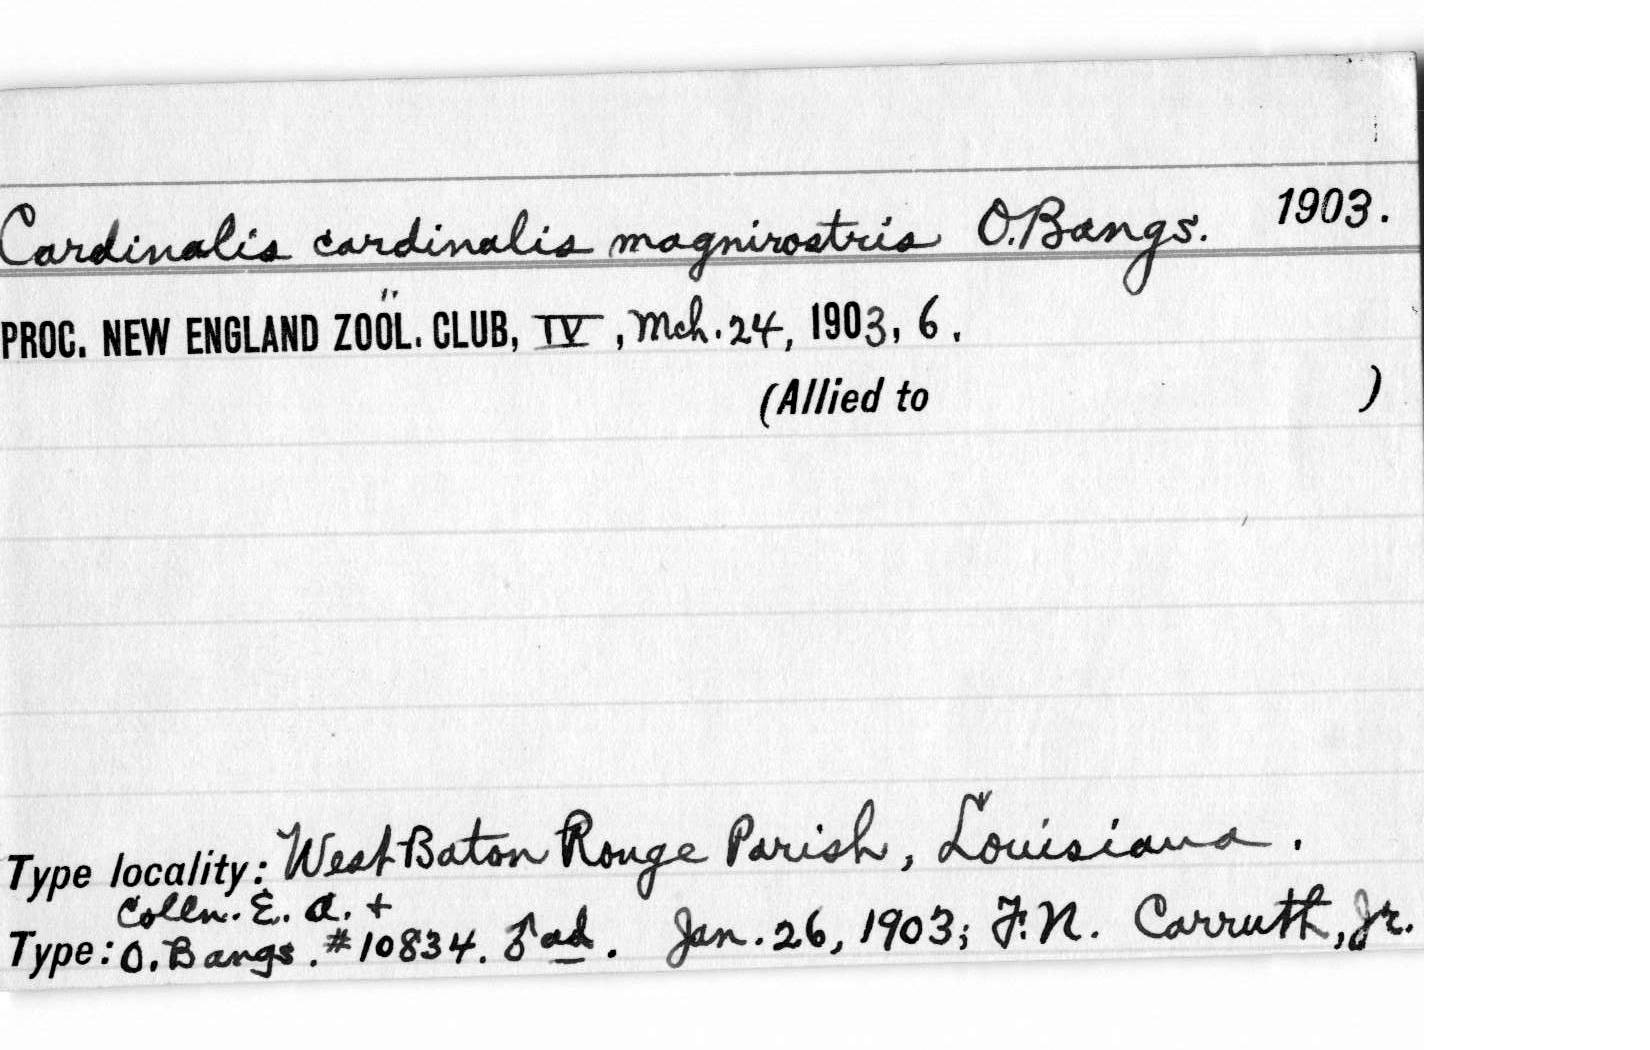 Cardinalis cardinalis magnirostris O. Bangs. 1903.
PROC. NEW ENGLAND ZOÖL. CLUB, IV, Mch. 24, 1903, 6.
(Allied to )
Type locality: West Baton Rouge Parish, Louisiana.
Colln. E. A. +
Type: O. Bangs. #10834. ♂ ad. Jan. 26, 1903; F. N. Carruth, Jr.